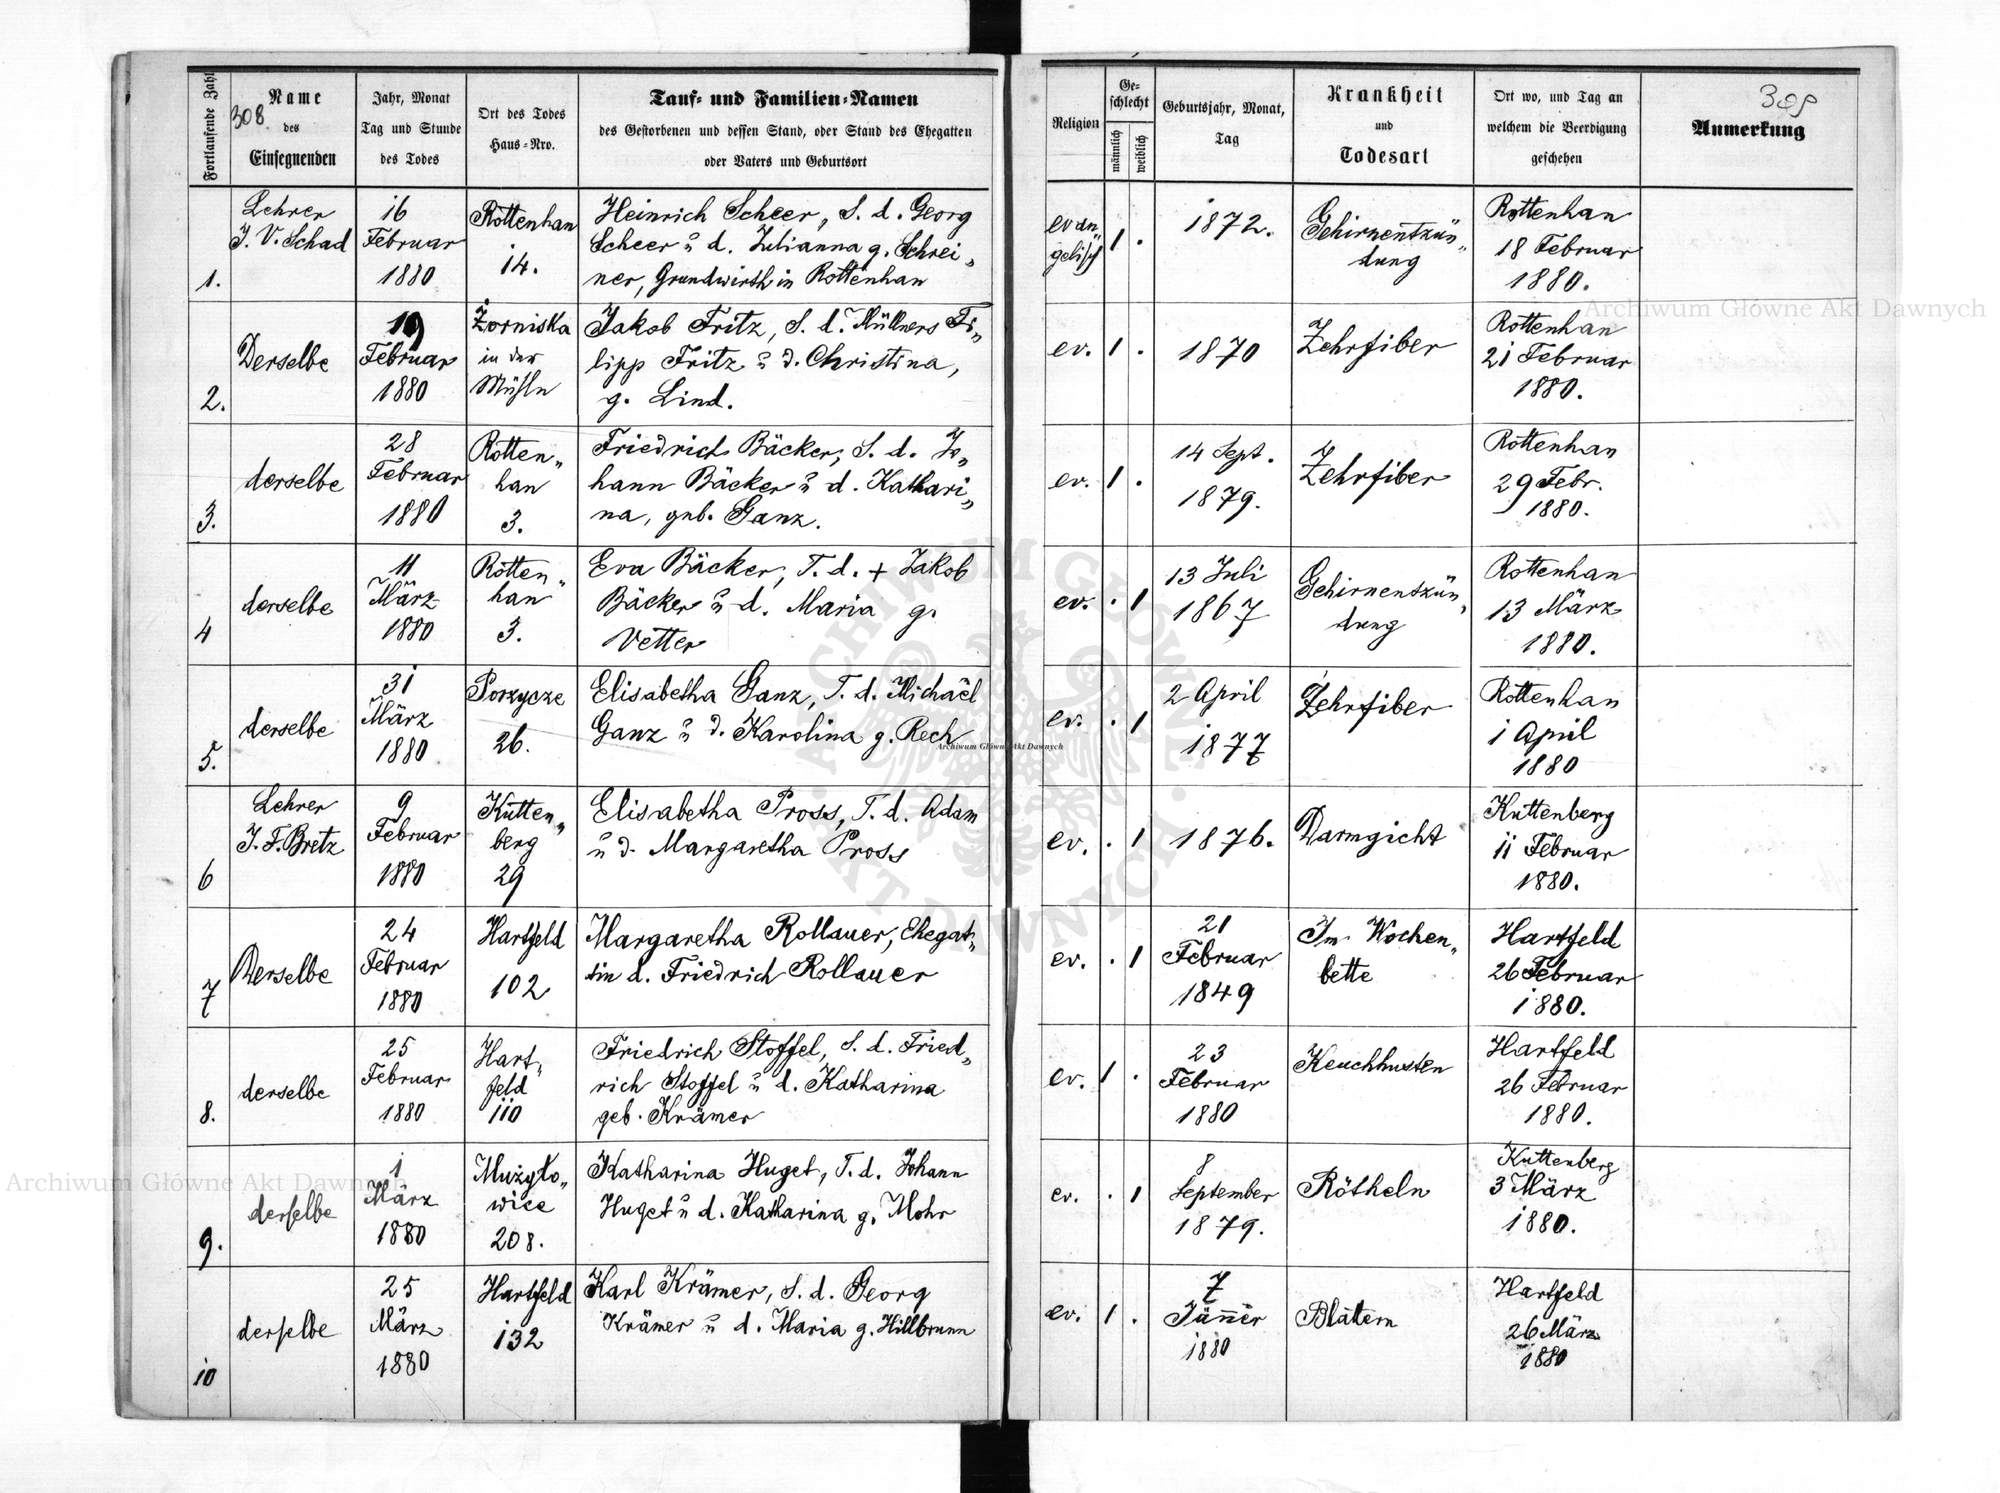 308
Fortlaufende Zahl
Name
des
Einsegnenden
Jahr, Monat
Tag und Stunde
des Todes
Ort des Todes
Haus-Nro.
Tauf- und Familien-Namen
des Gestorbenen und dessen Stand, oder Stand des Ehegatten
oder Vaters und Geburtsort
Religion
Ge-
schlecht
männlich
weiblich
Geburtsjahr, Monat,
Tag
Krankheit
und
Todesart
Ort wo, und Tag an
welchem die Beerdigung
geschehen
309
Anmerkung
1.
Lehrer
J. V. Schad
16
Februar
1880
Rottenhan
14.
Heinrich Scheer, S. d. Georg
Scheer u d. Julianna g. Schrei„
ner, Grundwirth in Rottenhan
evan„
gelisch
1 .
1872.
Gehirnentzün„
dung
Rottenhan
18 Februar
1880.
2.
Derselbe
19
Februar
1880
Żorniska
in der
Mühle
Jakob Fritz, S. d. Müllners Fi„
lipp Fritz u d. Christina,
g. Lind.
ev.
1 .
1870
Zehrfiber
Rottenhan
21 Februar
1880.
3.
derselbe
28
Februar
1880
Rotten„
han
3.
Friedrich Bäcker, S. d. Jo„
hann Bäcker u d. Kathari„
na, geb. Ganz.
ev.
1 .
14 Sept.
1879.
Zehrfiber
Rottenhan
29 Febr.
1880.
4
derselbe
11
März
1880
Rotten„
han
3.
Eva Bäcker, T. d. + Jakob
Bäcker u d. Maria g.
Vetter
ev.
. 1
13 Juli
1867
Gehirnentzün„
dung
Rottenhan
13 März
1880.
5.
derselbe
31
März
1880
Porzycze
26.
Elisabetha Ganz, T. d. Michaël
Ganz u d. Karolina g. Rech
ev.
. 1
2 April
1877
Zehrfiber
Rottenhan
1 April
1880
6
Lehrer
J. F. Bretz
9
Februar
1880
Kutten„
berg
29
Elisabetha Pross, T. d. Adam
u d. Margaretha Pross
ev.
. 1
1876.
Darmgicht
Kuttenberg
11 Februar
1880.
7
Derselbe
24
Februar
1880
Hartfeld
102
Margaretha Rollauer, Ehegat„
tin d. Friedrich Rollauer
ev.
. 1
21
Februar
1849
Im Wochen„
bette
Hartfeld
26 Februar
1880.
8.
derselbe
25
Februar
1880
Hart„
feld
110
Friedrich Stoffel, S. d. Fried„
rich Stoffel u d. Katharina
geb. Krämer
ev.
1 .
23
Februar
1880
Keuchhusten
Hartfeld
26 Februar
1880.
9.
derselbe
1
März
1880
Mużyło„
wice
208.
Katharina Huget, T. d. Johann
Huget u d. Katharina g. Mohr
ev.
. 1
8
September
1879.
Rötheln
Kuttenberg
3 März
1880.
10
derselbe
25
März
1880
Hartfeld
132
Karl Krämer, S. d. Georg
Krämer u d. Maria g. Hillbrunn
ev.
1 .
7
Jänner
1880
Blattern
Hartfeld
26 März
1880
Archiwum Główne Akt Dawnych
Archiwum Główne Akt Dawnych
Archiwum Główne Akt Dawnych
ARCHIWUM GŁÓWNE · AKT DAWNYCH ·